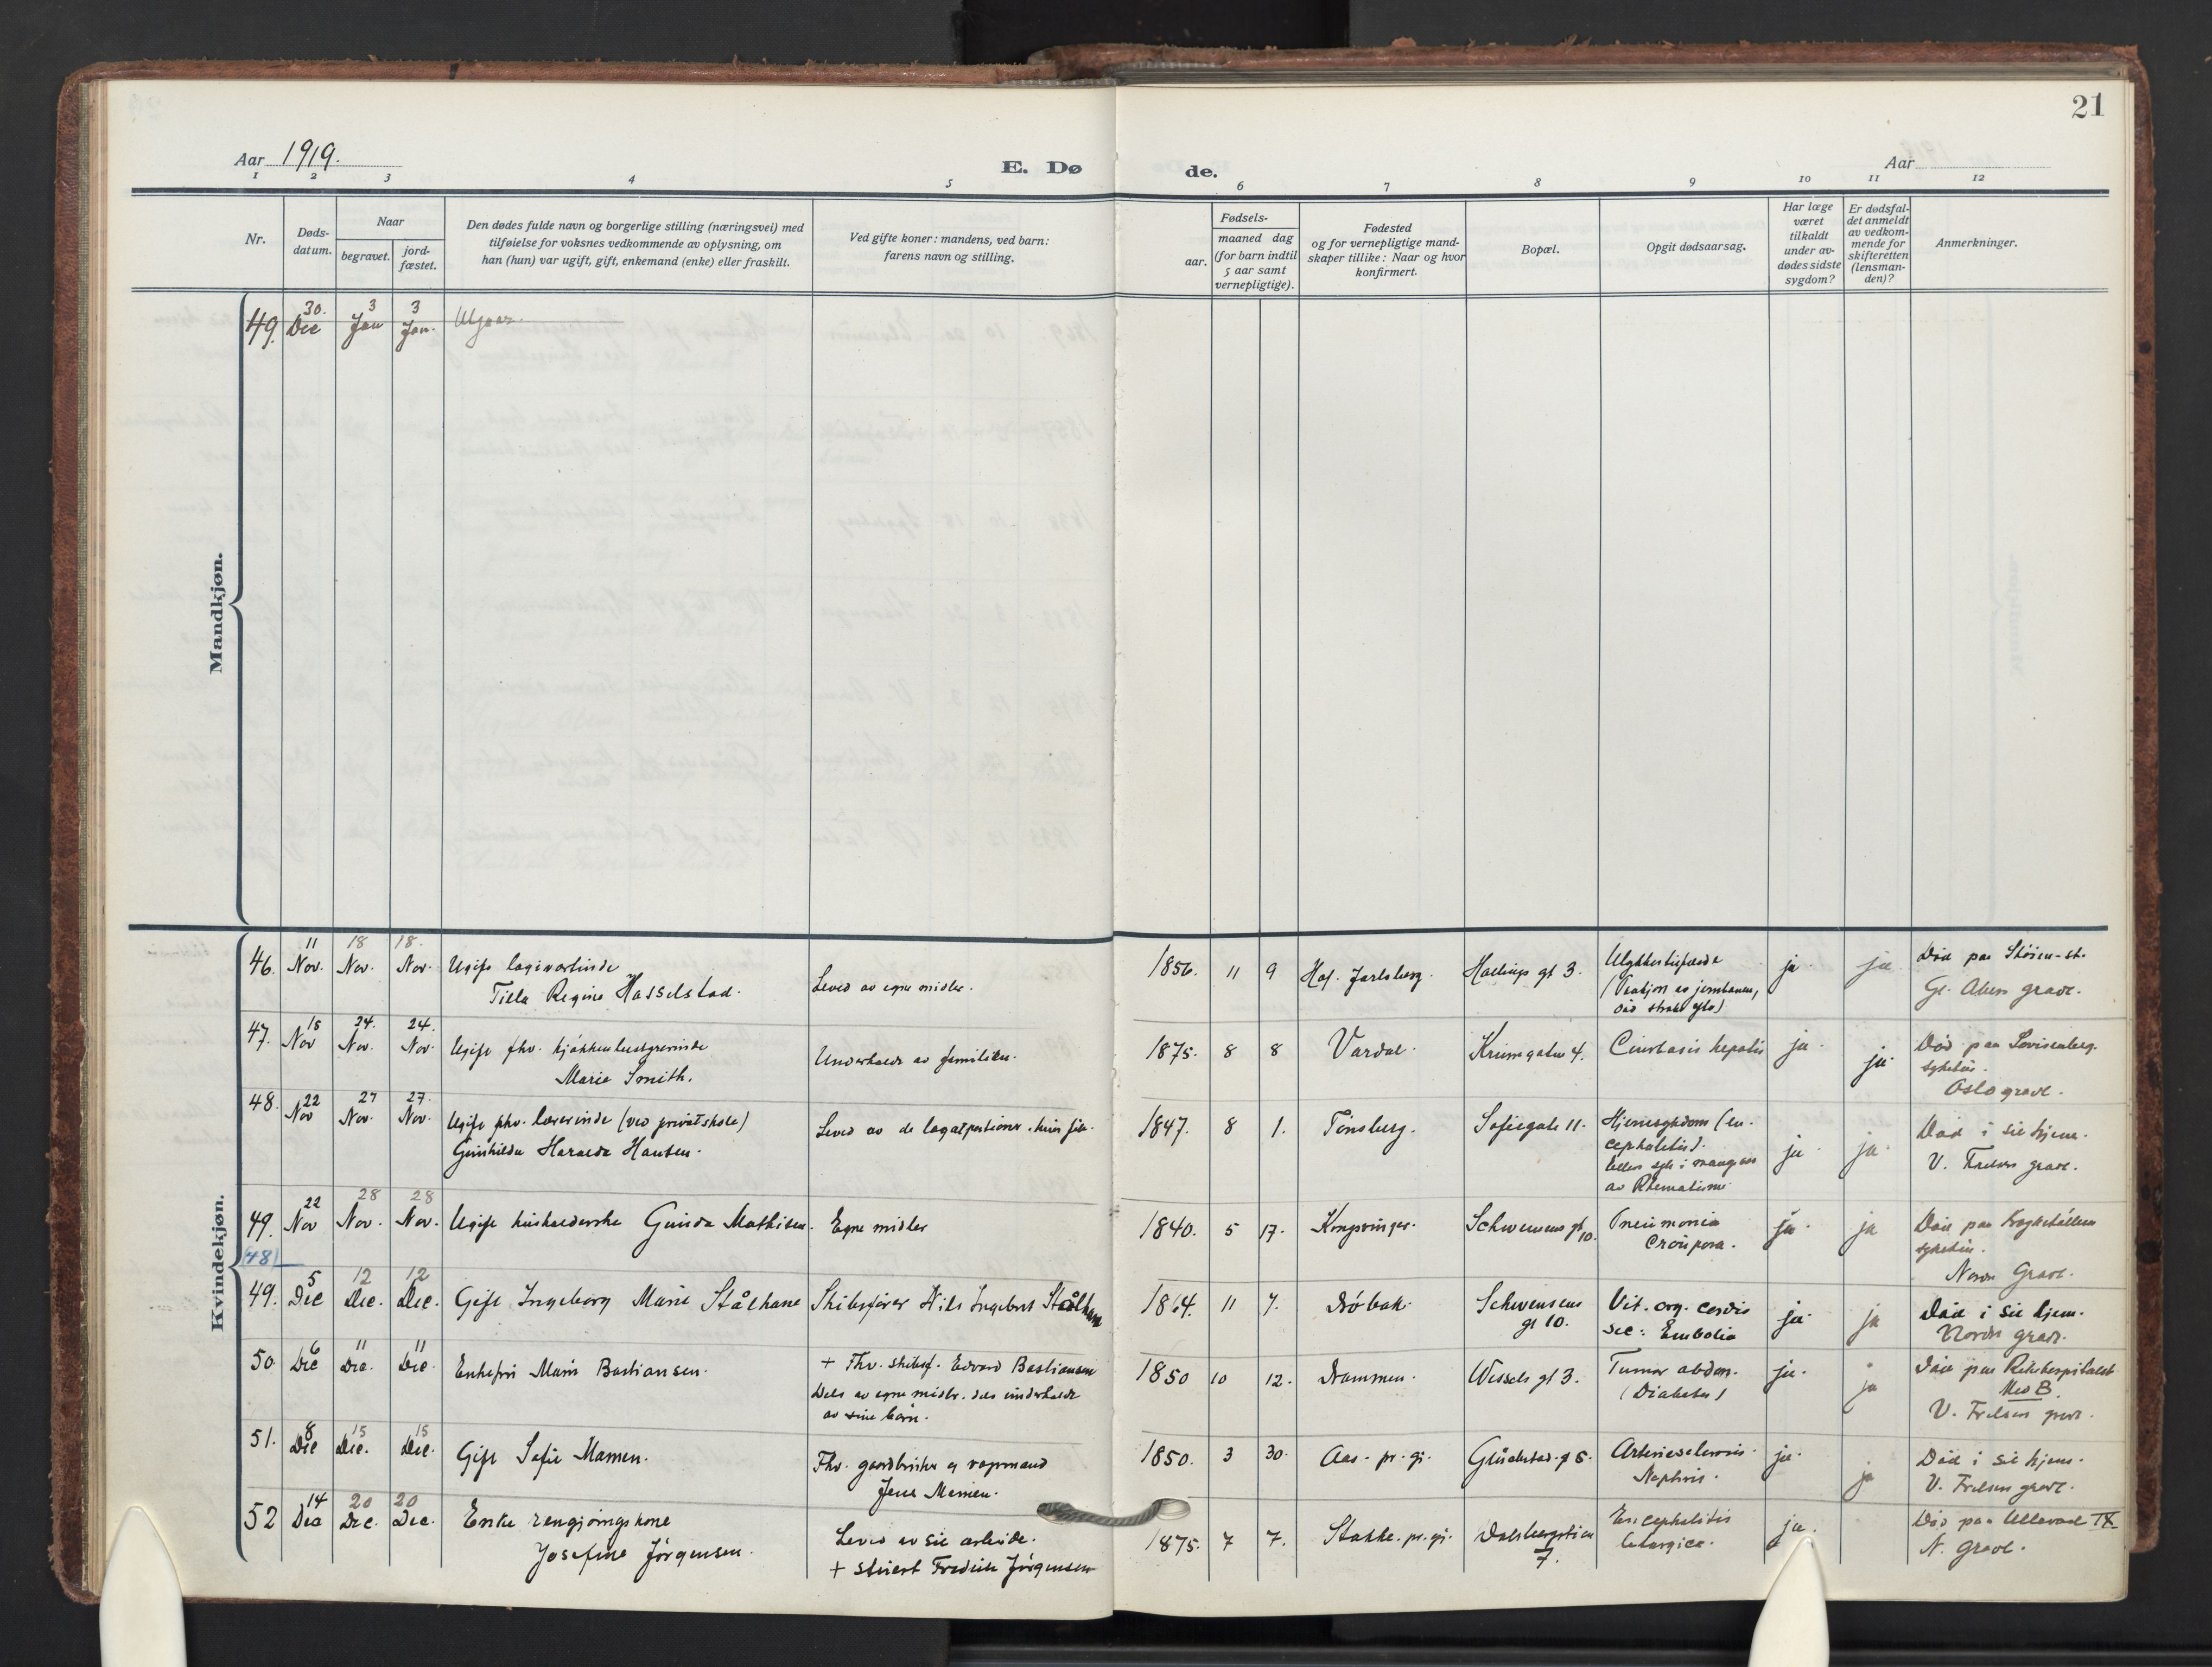 21
Aar 1919.
E. Dø de.
Aar
1 2 3 4 5 6 7 8 9 10 11 12
Nr.
Døds-
datum.
Naar
begravet.
jord-
fæstet.
Den dødes fulde navn og borgerlige stilling (næringsvei) med
tilføielse for voksnes vedkommende av oplysning, om
han (hun) var ugift, gift, enkemand (enke) eller fraskilt.
Ved gifte koner: mandens, ved barn:
farens navn og stilling.
Fødsels-
aar.
maaned dag
(for barn indtil
5 aar samt
vernepligtige).
Fødested
og for vernepligtige mand-
skaper tillike: Naar og hvor
konfirmert.
Bopæl.
Opgit dødsaarsag.
Har læge
været
tilkaldt
under av-
dødes sidste
sygdom?
Er dødsfal-
det anmeldt
av vedkom-
mende for
skifteretten
(lensman-
den)?
Anmerkninger.
Mandkjøn.
49. 30. Dec 3 Jan 3 Jan. Utgaar.
Kvindekjøn.
46. 11 Nov. 18 Nov. 18. Nov. Ugift logivertinde
Tilla Regine Hasselstad.
Leved av egne midler.
1856. 11 9 Hof. Jarlsberg. Hallings gt 3.
Ulykkestilfælde
ja ja
Død paa Støren-st.
Gl. Akers gravl.
47. 15 Nov 24. Nov. 24. Nov. Ugift fhv. kjøkkenbestyrerinde
Marie Smith.
Underholdt av familien.
1875. 8 8 Vardal. Krumgaten 4. Cirrhosis hepatis ja ja
Død paa Lovisenberg.
sykehus.
Oslo gravl.
48. 22 Nov 27 Nov. 27. Nov. Ugift fhv. lærerinde (ved privatskole)
Gunhilda Haralda Hansen.
Leved av de legatportioner hun fik.
1847. 8 1. Tønsberg. Sofiegate 11.
Hjernesygdom (en-
cephalitis).
Ellers syk i mange aar
av Rhematisme
ja ja
Død i sit hjem.
V. Frelsers gravl.
49. 22 Nov 28 Nov. 28 Nov. Ugift husholderske Gunda Mathisen. Egne midler
1840. 5 17. Kongsvinger. Schwensens gt 10.
Pneumonia
Crouposa.
ja ja
Død paa
sykehus.
Nordre Gravl.
(48)
49. 5 Dec 12 Dec. 12 Dec. Gift Ingeborg Marie Stålhane Skibsfører Nils Ingebret Stålhane
1864. 11 7. Drøbak. Schwensens
gt 10.
Vit. org. cordis
sec: Embolia
ja ja
Død i sit hjem.
Nordre gravl.
50. 6 Dec 11 Dec. 11 Dec. Enkefru Marie Bastiansen.
+ Fhv. skibsf. Edvard Bastiansen
Dels av egne midler. dels underholdt
av sine børn.
1850 10 12. Drammen. Wessels gt 3.
Tumor abdom.
(Diabetes)
ja ja
Død paa Rikshospitalet
Med B.
V. Frelsers gravl.
51. 8 Dec 15 Dec. 15 Dec. Gift Sofie Mamen.
Fhv. gaardbruker og vognmand
Jens Mamen.
1850. 3 30. Aas. pr. gj. Glückstad. g 6.
Arteriesclerosis.
Nephrit.
ja ja
Død i sit hjem.
V. Frelsers gravl.
52 14 Dec 20 Dec. 20 Dec. Enke rengjøringskone
Josefine Jørgensen.
Leved av sit arbeide.
+ stuert Fredrik Jørgensen
1875. 7 7. Stokke. pr. gj. Dalsbergstien
7.
Encephalitis
letargica.
ja.
Død paa Ullevaal IX
N. Gravl.